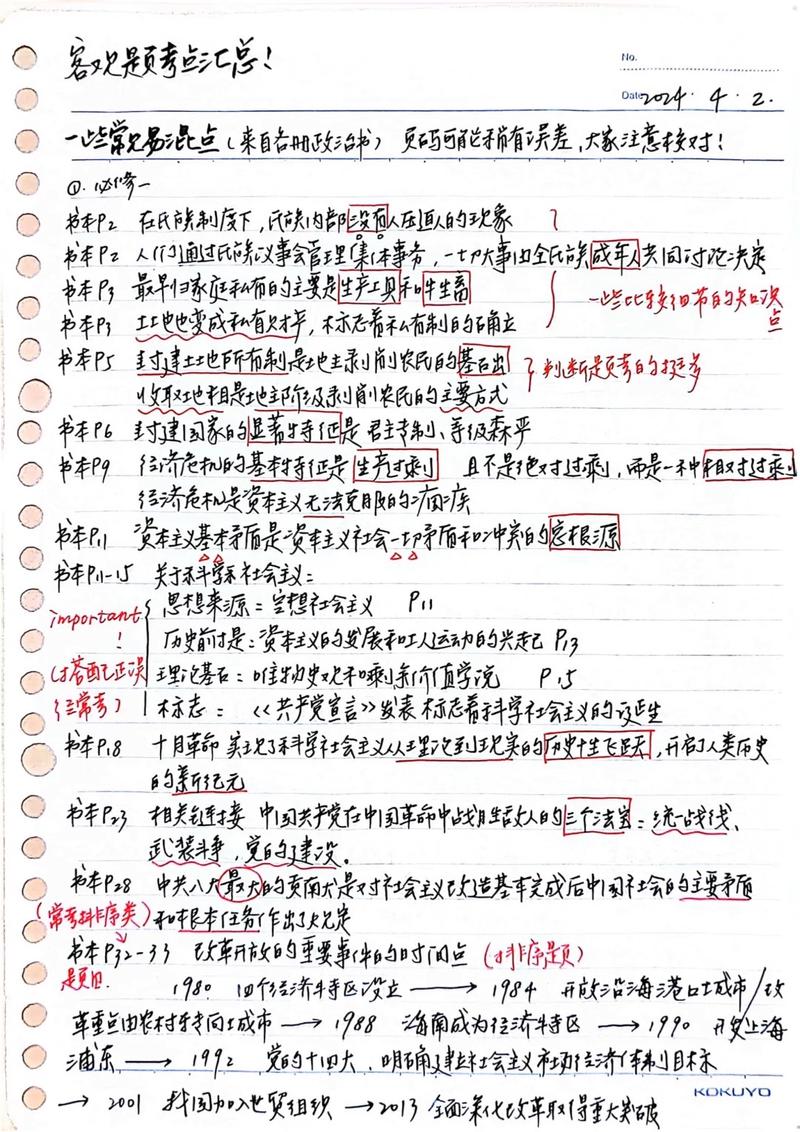 客观题考点汇总！
No.
Date 2024. 4. 2.
一些常见易混点（来自各册政治书） 页码可能稍有误差，大家注意核对！
①. 必修一
书本P2 在氏族制度下，氏族内部没有人压迫人的现象
书本P2 人们通过氏族议事会管理集体事务，一切大事由全氏族成年人共同讨论决定
书本P3 最早归家庭私有的主要是生产工具和牲畜
一些比较细节的知识点
书本P3 土地也变成私有财产，标志着私有制的确立
书本P5 封建土地所有制是地主剥削农民的基础
判断题考的挺多
收取地租是地主阶级剥削农民的主要方式
书本P6 封建国家的显著特征是君主专制、等级森严
书本P9 经济危机的基本特征是生产过剩 且不是绝对过剩，而是一种相对过剩
经济危机是资本主义无法克服的痼疾
书本P11 资本主义基本矛盾是资本主义社会一切矛盾和冲突的总根源
书本P11-15 关于科学社会主义：
important！
（搭配正误经常考）
思想来源：空想社会主义 P11
历史前提：资本主义的发展和工人运动的兴起 P13
理论基石：唯物史观和剩余价值学说 P15
标志：《共产党宣言》发表标志着科学社会主义的诞生
书本P18 十月革命实现了科学社会主义从理论到现实的历史性飞跃，开启了人类历史
的新纪元
书本P23 相关链接 中国共产党在中国革命中战胜敌人的三个法宝：统一战线、
武装斗争，党的建设。
书本P28 中共八大最大的贡献是对社会主义改造基本完成后中国社会的主要矛盾
和根本任务作出了规定
（常考排序类题目.
书本P32-33 改革开放的重要事件的时间点（排序题）
1980 四个经济特区设立 → 1984 开放沿海港口城市/改
革重点由农村转向城市 → 1988 海南成为经济特区 → 1990 开发上海
浦东 → 1992 党的十四大，明确建立社会主义市场经济体制目标
→ 2001 我国加入世贸组织 → 2013 全面深化改革取得重大突破
KOKUYO